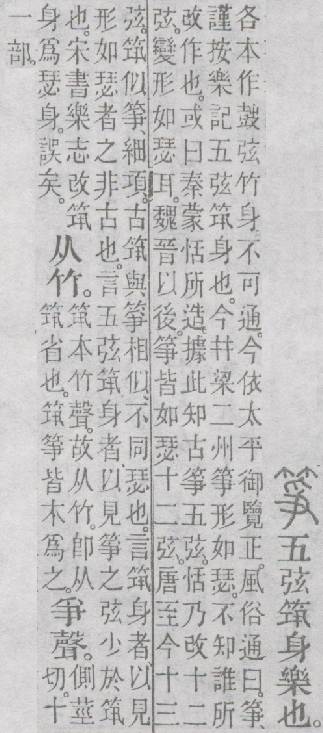 箏五弦筑身樂也。
各本作鼓弦竹身、不可通。今依太平御覽正。風俗通曰。箏、
謹按樂記五弦筑身也。今幷梁二州箏形如瑟。不知誰所
改作也。或曰秦蒙恬所造。據此知古箏五弦。恬乃改十二
弦。變形如瑟耳。魏晉以後。箏皆如瑟十二弦。唐至今十三
弦。筑似箏、細項。古筑與箏相似、不同瑟也。言筑身者、以見
形如瑟者之非古也。言五弦筑身者、以見箏之弦少於筑
也。宋書樂志改筑
身爲瑟身。誤矣。
从竹。
筑本竹聲。故从竹。卽从
筑省也。筑箏皆木爲之。
爭聲。
側莖
切。十
一部。